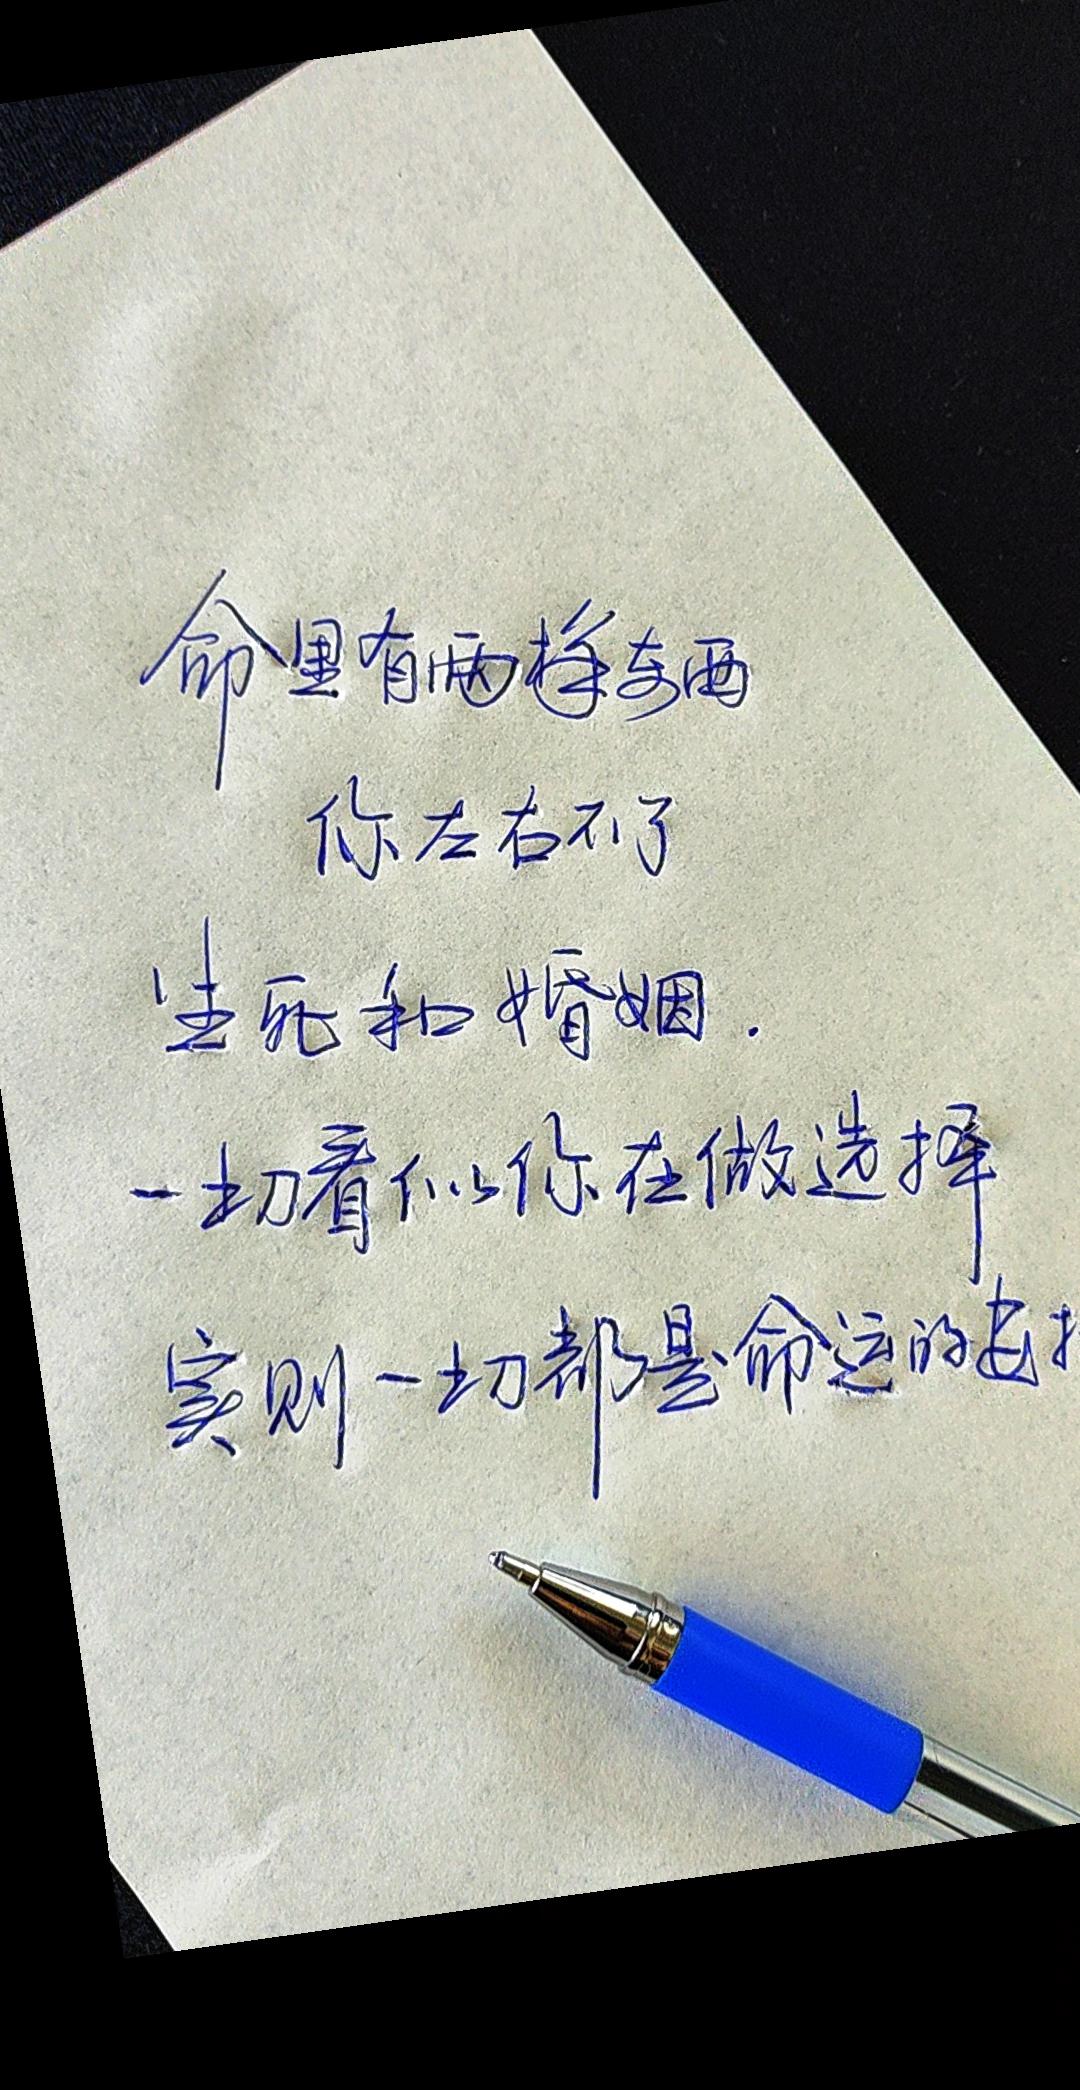 命里有两样东西
你左右不了
生死和婚姻.
一切看似你在做选择
实则一切都是命运的安